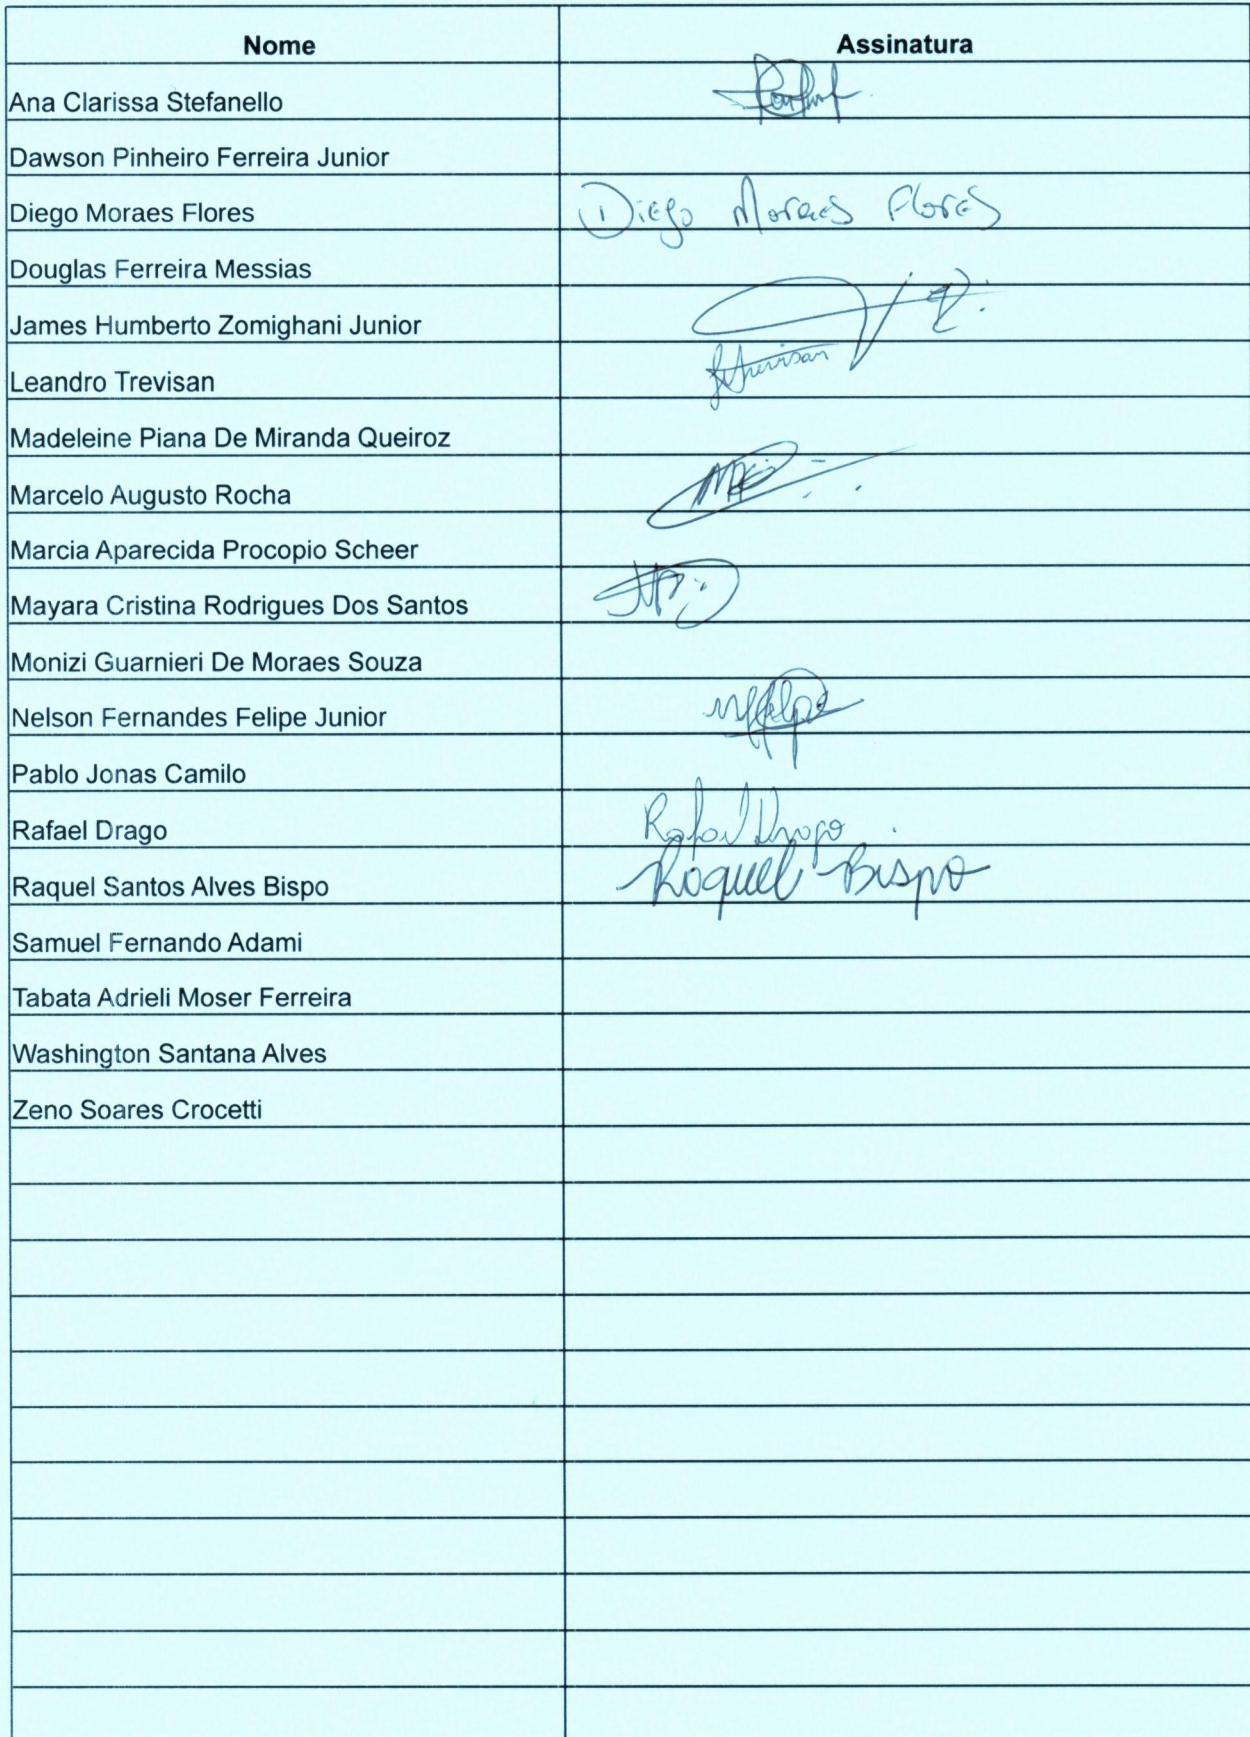 Nome Assinatura
Ana Clarissa Stefanello
Dawson Pinheiro Ferreira Junior
Diego Moraes Flores Diego Moraes Flores
Douglas Ferreira Messias
James Humberto Zomighani Junior
Leandro Trevisan Trevisan
Madeleine Piana De Miranda Queiroz
Marcelo Augusto Rocha
Marcia Aparecida Procopio Scheer
Mayara Cristina Rodrigues Dos Santos
Monizi Guarnieri De Moraes Souza
Nelson Fernandes Felipe Junior
Pablo Jonas Camilo
Rafael Drago Rafael Drago
Raquel Santos Alves Bispo Raquel Bispo
Samuel Fernando Adami
Tabata Adrieli Moser Ferreira
Washington Santana Alves
Zeno Soares Crocetti